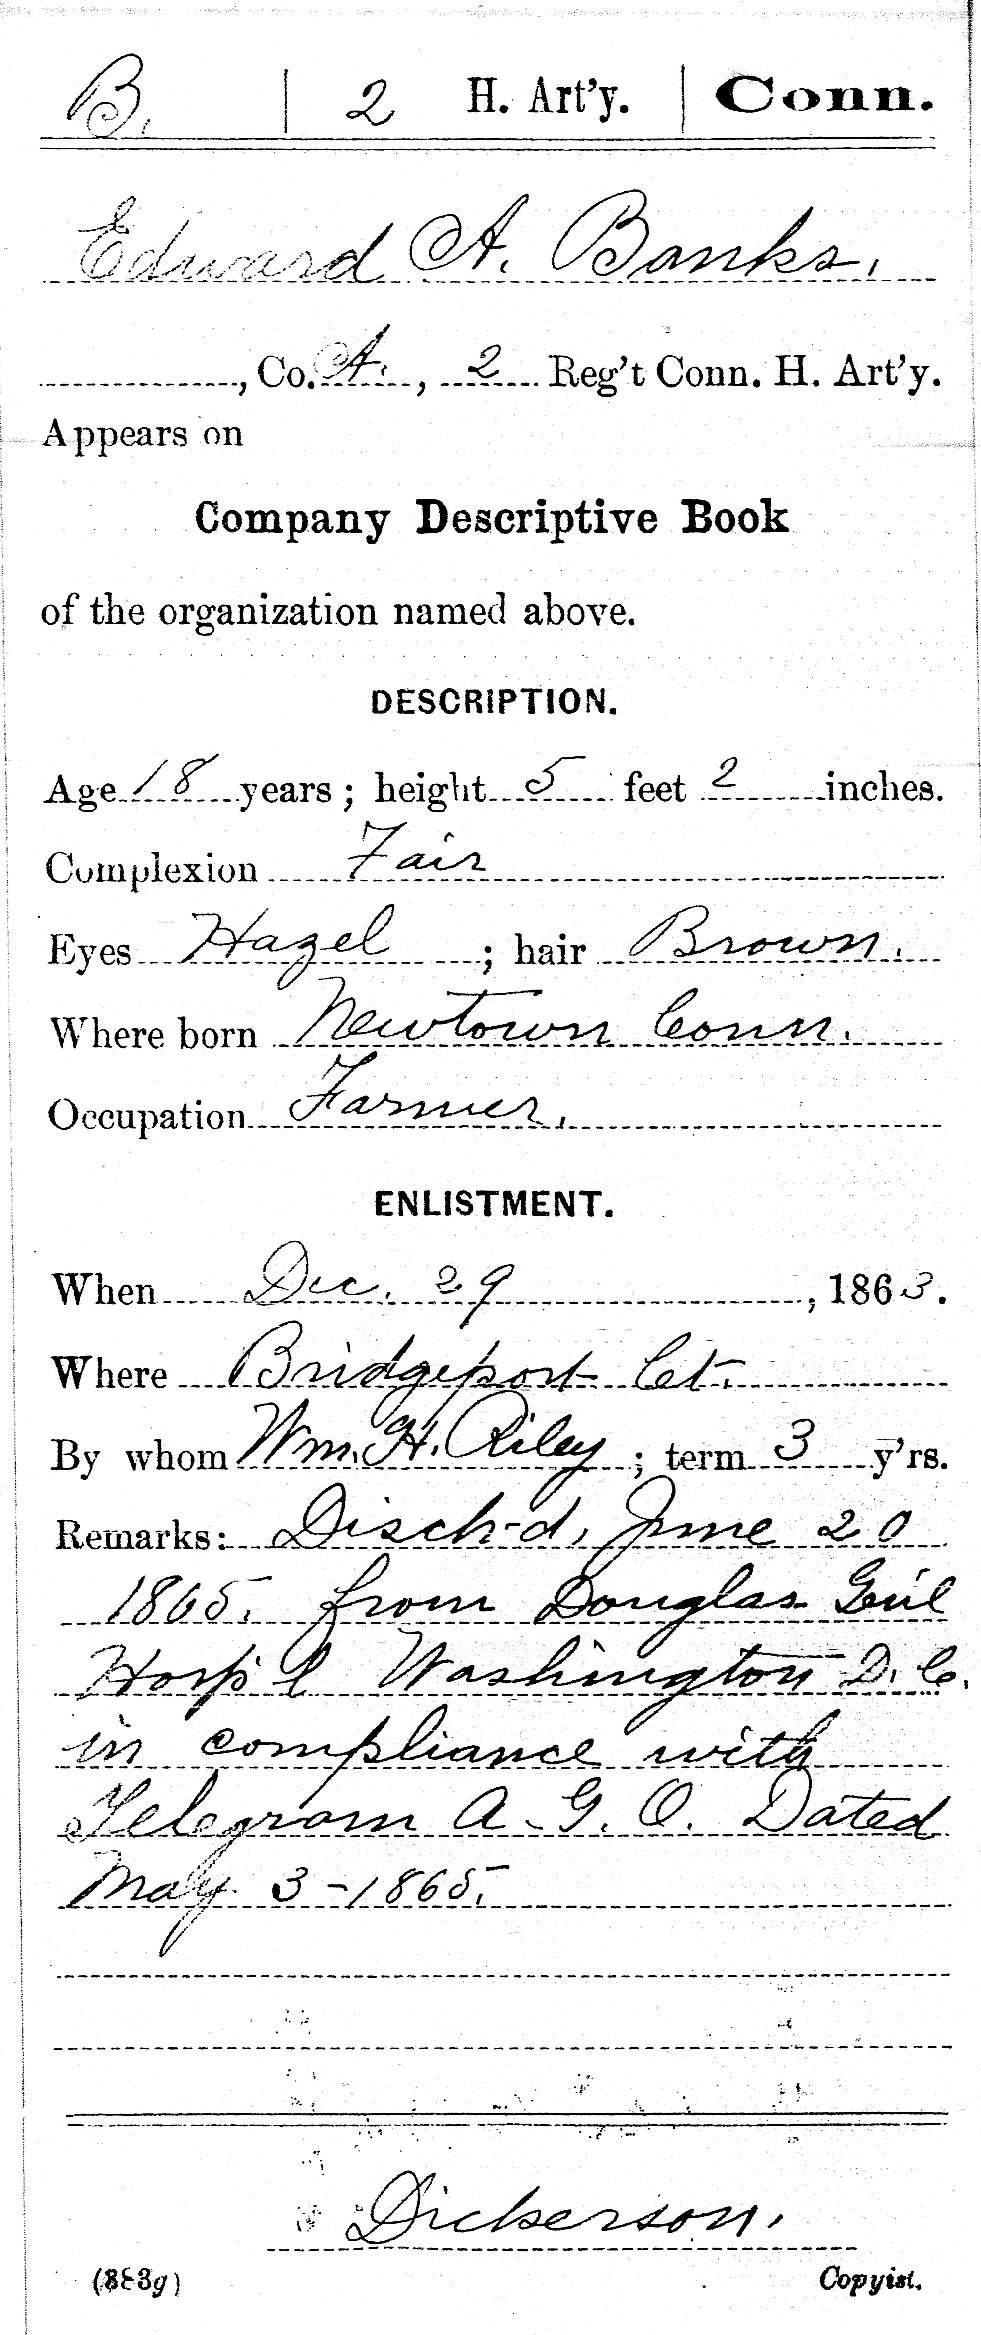 B. | 2 H. Art'y. | Conn.
Edward A. Banks.
, Co. A., 2 Reg't Conn. H. Art'y.
Appears on
Company Descriptive Book
of the organization named above.
DESCRIPTION.
Age 18 years; height 5 feet 2 inches.
Complexion Fair
Eyes Hazel ; hair Brown.
Where born Newtown Conn.
Occupation Farmer.
ENLISTMENT.
When Dec. 29, 1863.
Where Bridgeport Ct.
By whom Wm. H. Riley ; term 3 y'rs.
Remarks: Disch-d, June 20
1865. from Douglas Gen'l
Hosp'l Washington D. C.
in compliance with
Telegram A. G. O. Dated
May 3-1865.
Dickerson.
(883g) Copyist.